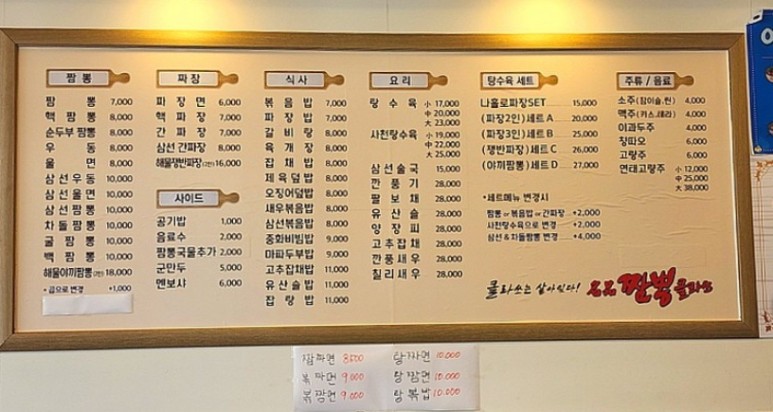 짬뽕
짬뽕 7,000
핵짬뽕 8,000
순두부짬뽕 8,000
우동 8,000
울면 8,000
삼선우동 10,000
삼선울면 10,000
삼선짬뽕 10,000
차돌짬뽕 10,000
굴짬뽕 10,000
백짬뽕 10,000
해물야끼짬뽕(2인) 18,000
*곱으로 변경 +1,000
짜장
짜장면 6,000
핵짜장 7,000
간짜장 7,000
삼선간짜장 8,000
해물쟁반짜장(2인) 16,000
사이드
공기밥 1,000
음료수 2,000
짬뽕국물추가 2,000
군만두 5,000
멘보샤 6,000
식사
볶음밥 7,000
짜장밥 7,000
갈비탕 8,000
육개장 8,000
잡채밥 8,000
제육덮밥 8,000
오징어덮밥 8,000
새우볶음밥 8,000
삼선볶음밥 8,000
중화비빔밥 9,000
마파두부밥 9,000
고추잡채밥 11,000
유산슬밥 11,000
잡탕밥 11,000
요리
탕수육 小 17,000
中 20,000
大 23,000
사천탕수육 小 19,000
中 22,000
大 25,000
삼선술국 15,000
깐풍기 28,000
팔보채 28,000
유산슬 28,000
양장피 28,000
고추잡채 28,000
깐풍새우 28,000
칠리새우 28,000
탕수육 세트
나홀로짜장SET 15,000
(짜장2인) 세트 A 20,000
(짜장3인) 세트 B 25,000
(쟁반짜장) 세트 C 26,000
(야끼짬뽕) 세트 D 27,000
*세트메뉴 변경시
짬뽕 or 볶음밥 or 간짜장 +2,000
사천탕수육으로 변경 +2,000
삼선&차돌짬뽕 변경 +4,000
주류 / 음료
소주(참이슬,진) 4,000
맥주(카스,테라) 4,000
이과두주 4,000
칭따오 6,000
고량주 6,000
연태고량주 小 12,000
中 25,000
大 38,000
짬뽕
짬짜면 8500
볶짜면 9,000
볶짬면 9,000
탕짜면 10,000
탕짬면 10,000
탕볶밥 10,000